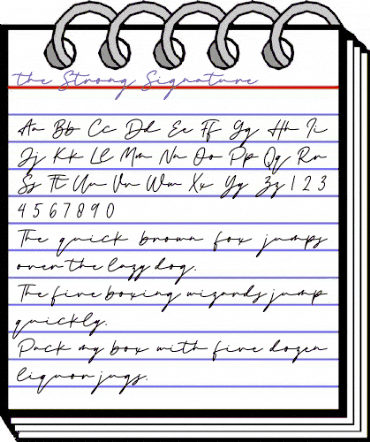 the Strong Signature
Aa Bb Cc Dd Ee Ff Gg Hh Ii
Jj Kk Ll Mm Nn Oo Pp Qq Rr
Ss Tt Uu Vv Ww Xx Yy Zz 1 2 3
4 5 6 7 8 9 0
The quick brown fox jumps
over the lazy dog.
The five boxing wizards jump
quickly.
Pack my box with five dozen
liquor jugs.